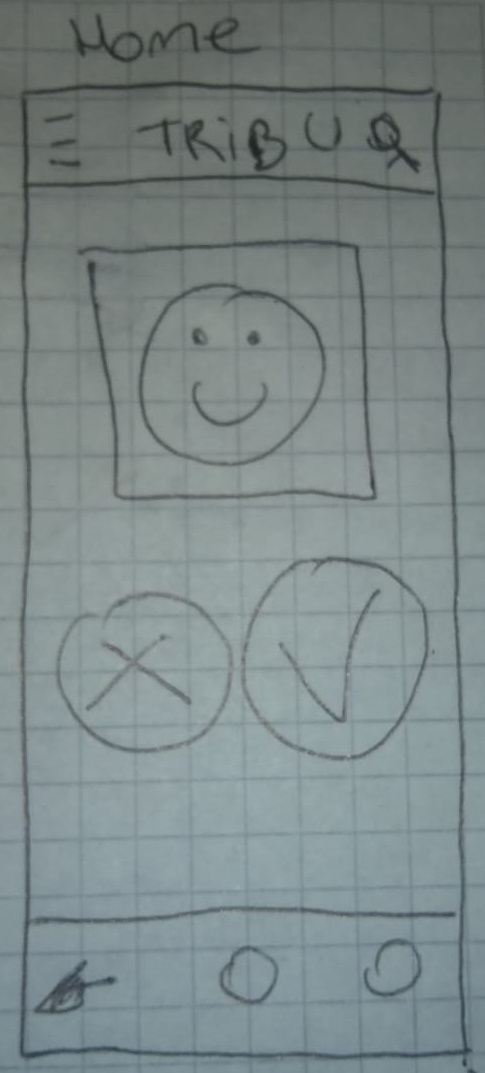 Home
TRiBU